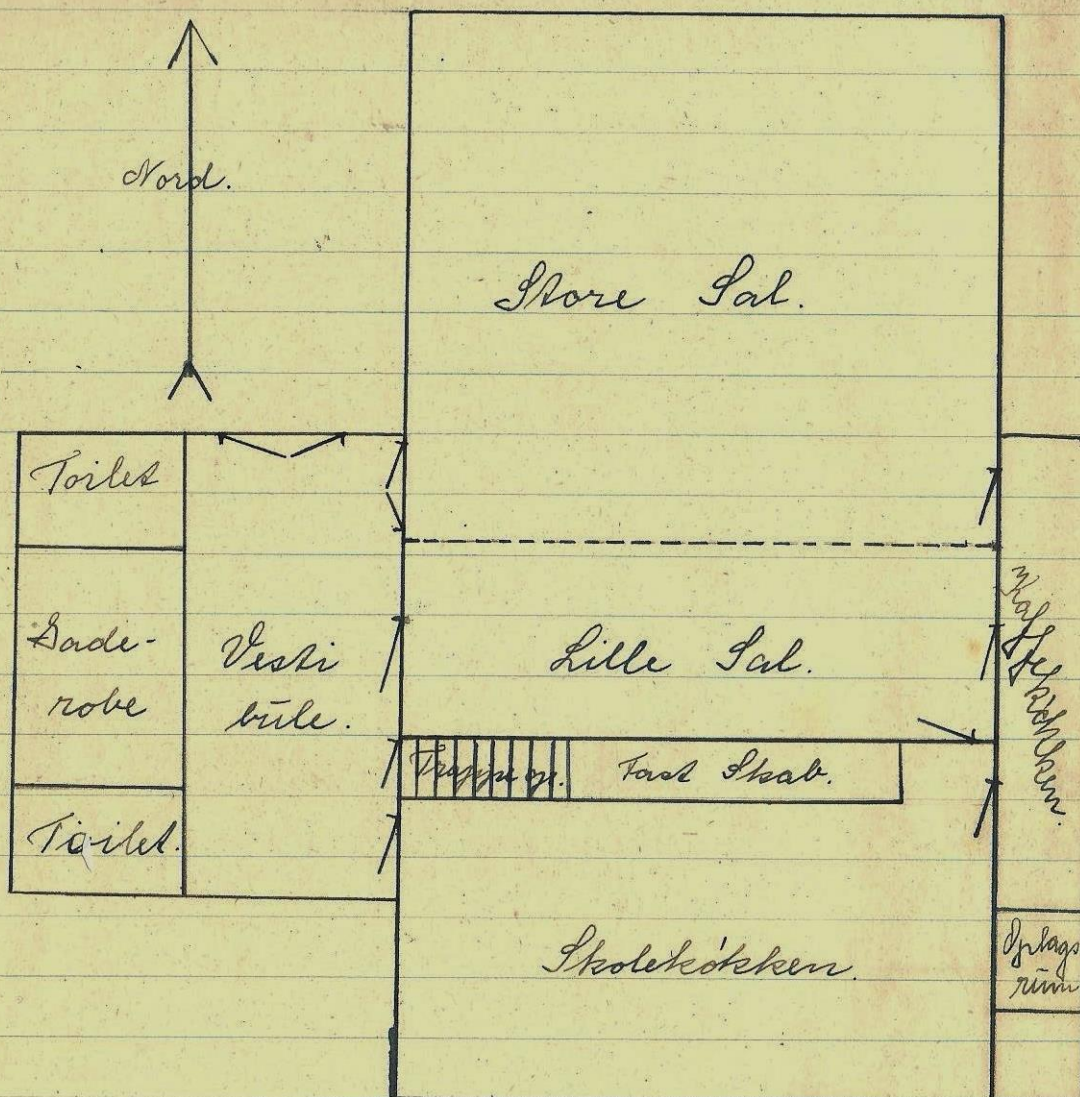 Nord.
Store Sal.
Toilet
Gade-
robe
Vesti
büle.
Lille Sal.
Kaffekökken.
Trappe op.
Fast Skab.
Toilet.
Skolekökken.
Oplags
rüm